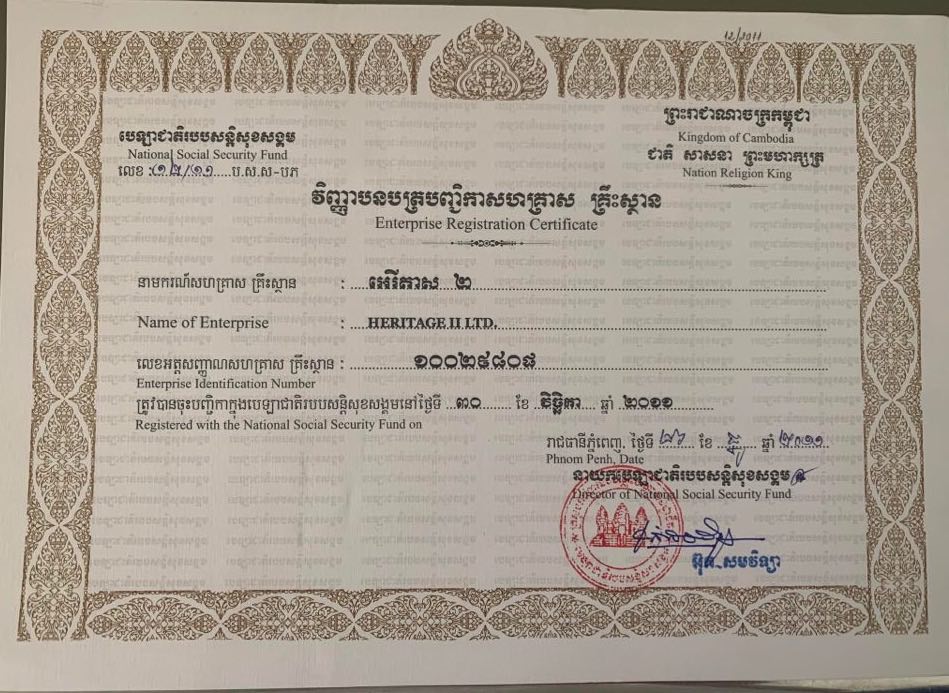 12/2011
ព្រះរាជាណាចក្រកម្ពុជា
Kingdom of Cambodia
ជាតិ សាសនា ព្រះមហាក្សត្រ
Nation Religion King
បេឡាជាតិរបបសន្តិសុខសង្គម
National Social Security Fund
លេខ :០១២/១១.....ប.ស.ស-បភ
វិញ្ញាបនបត្របញ្ជិកាសហគ្រាស គ្រឹះស្ថាន
Enterprise Registration Certificate
នាមករណ៍សហគ្រាស គ្រឹះស្ថាន : អេរីតាស ២
Name of Enterprise : HERITAGE II LTD.
លេខអត្តសញ្ញាណសហគ្រាស គ្រឹះស្ថាន : ១០០២៩៨០៨
Enterprise Identification Number
ត្រូវបានចុះបញ្ជិកាក្នុងបេឡាជាតិរបបសន្តិសុខសង្គមនៅថ្ងៃទី ៣០ ខែ វិច្ឆិកា ឆ្នាំ ២០១១
Registered with the National Social Security Fund on
រាជធានីភ្នំពេញ, ថ្ងៃទី ខែ ធ្នូ ឆ្នាំ ២០១១
Phnom Penh, Date
នាយកបេឡាជាតិរបបសន្តិសុខសង្គម
Director of National Social Security Fund
អ៊ុក សមវិទ្យា